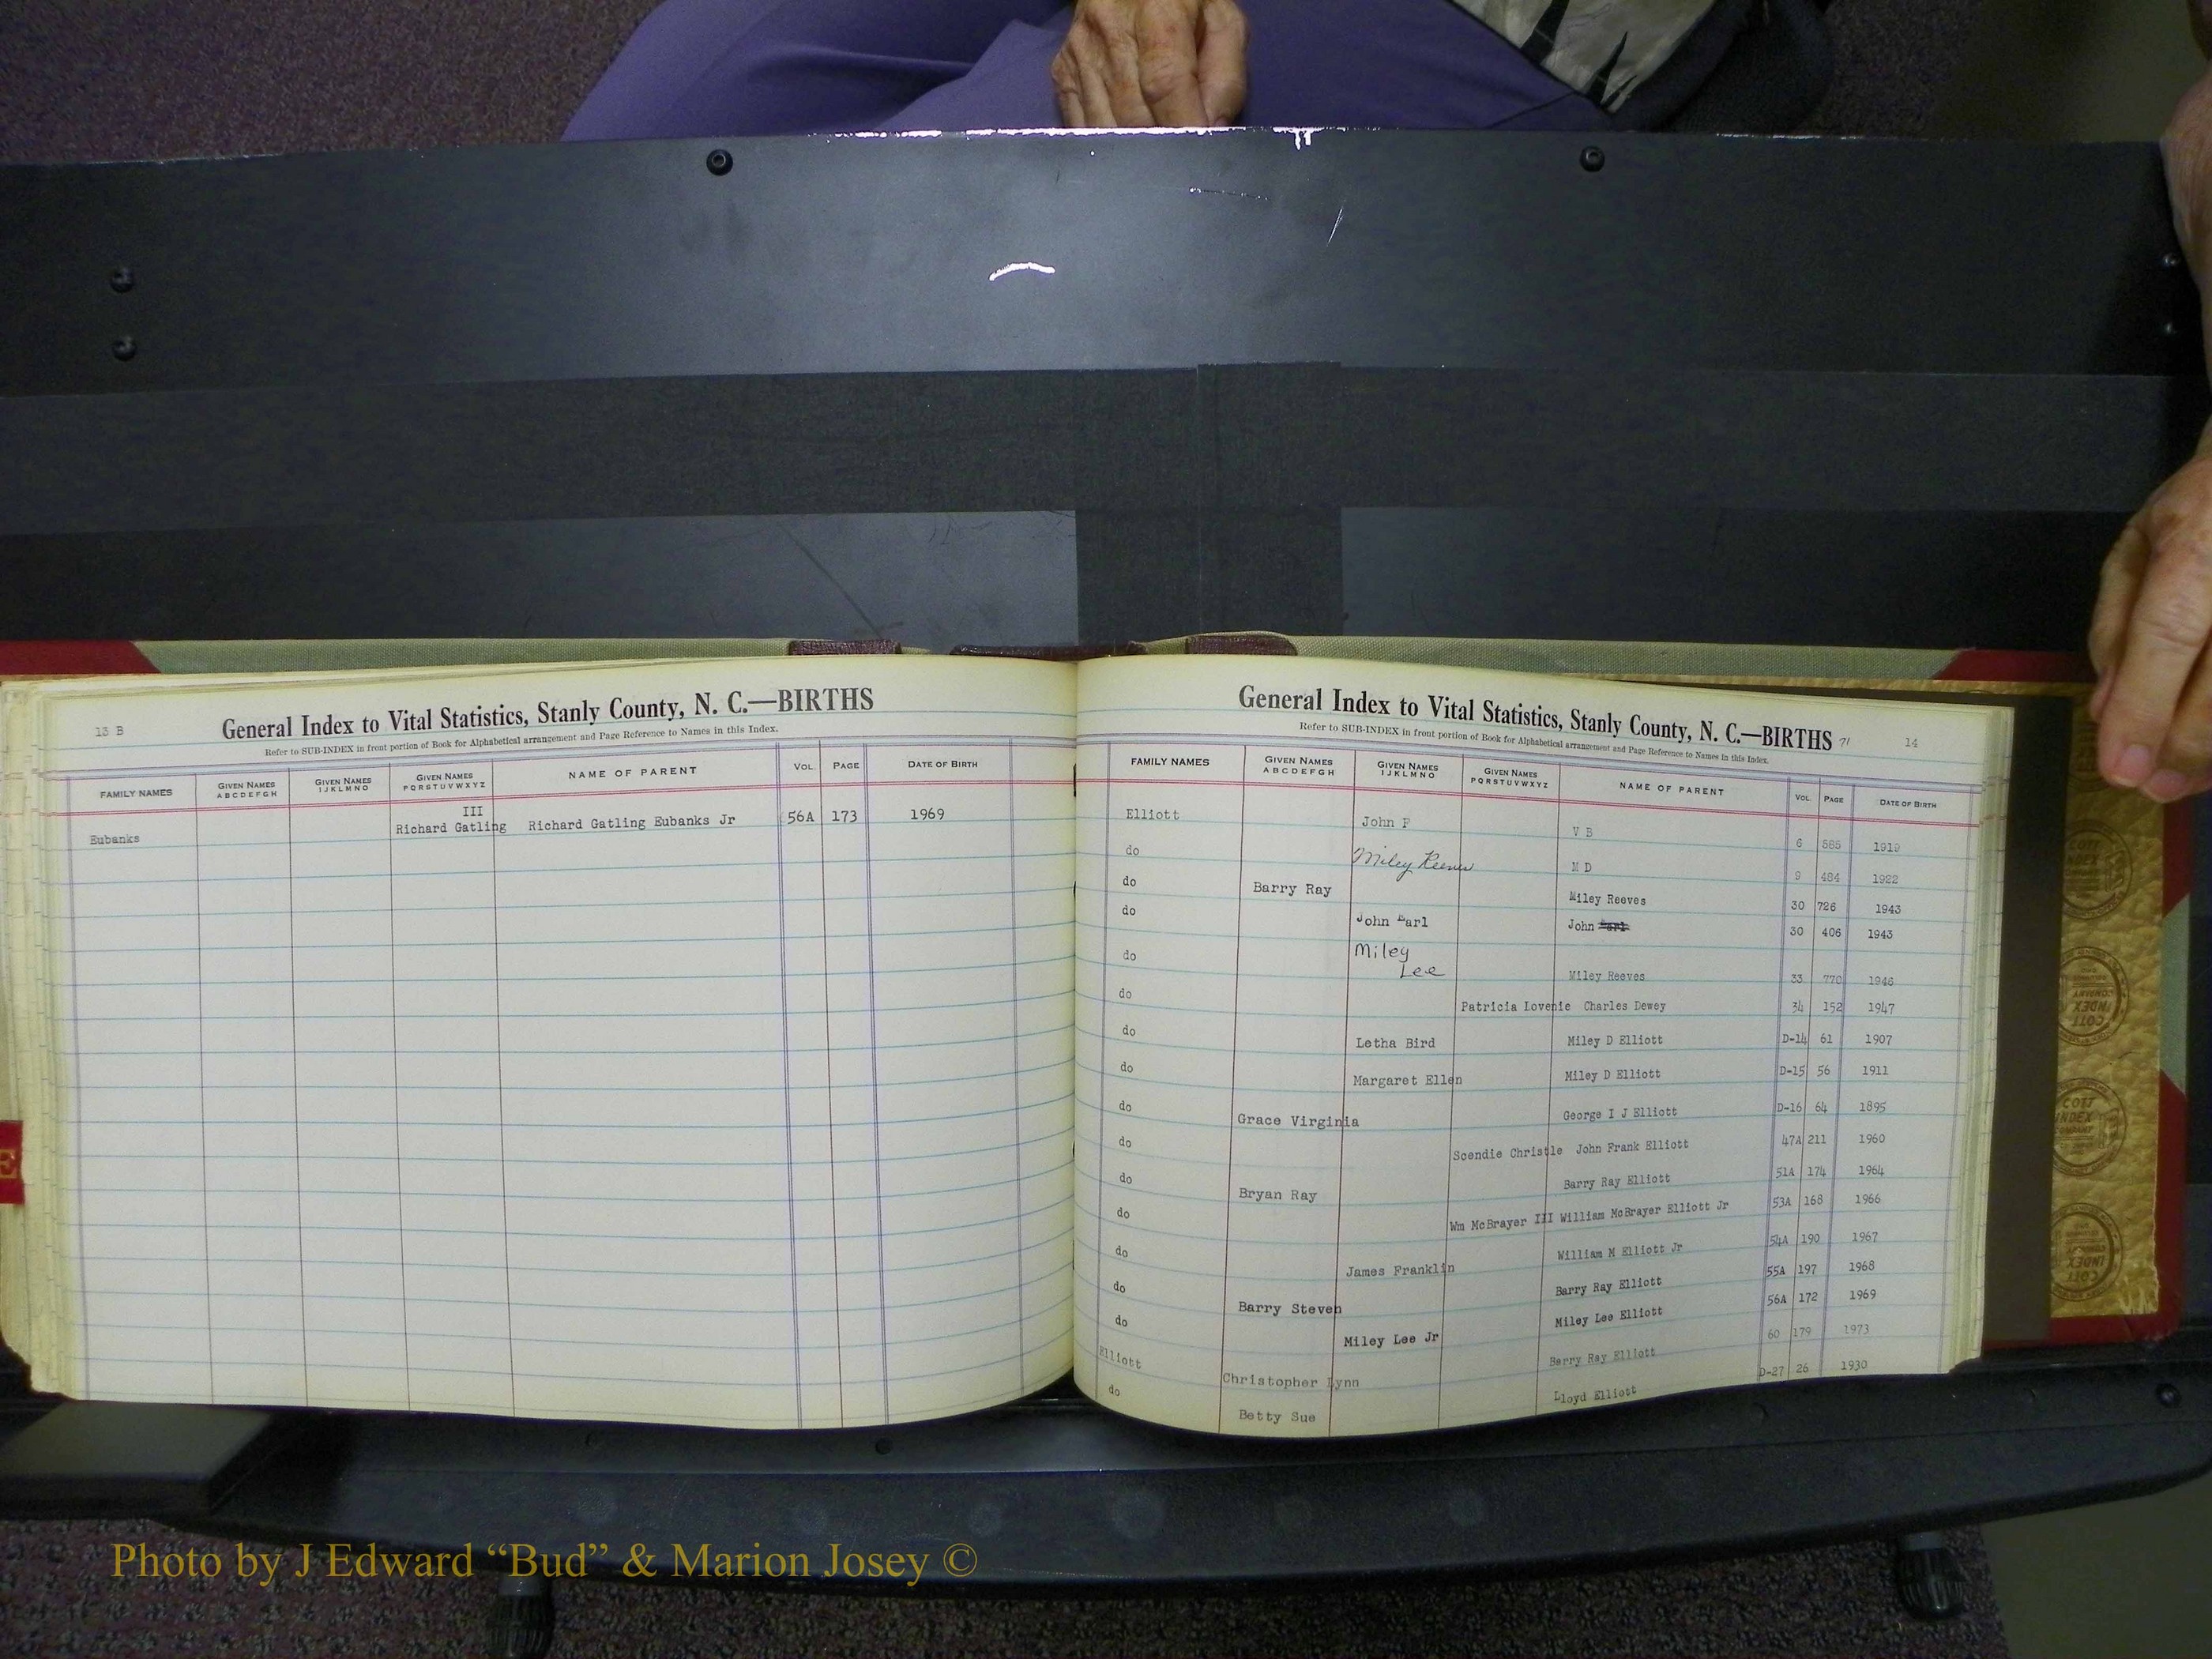 13 B
General Index to Vital Statistics, Stanly County, N. C.—BIRTHS
Refer to SUB-INDEX in front portion of Book for Alphabetical arrangement and Page Reference to Names in this Index.
FAMILY NAMES GIVEN NAMES ABCDEFGH GIVEN NAMES IJKLMNO GIVEN NAMES PQRSTUVWXYZ NAME OF PARENT VOL. PAGE DATE OF BIRTH
III
Eubanks Richard Gatling Richard Gatling Eubanks Jr 56A 173 1969
E
General Index to Vital Statistics, Stanly County, N. C.—BIRTHS 71 14
Refer to SUB-INDEX in front portion of Book for Alphabetical arrangement and Page Reference to Names in this Index.
FAMILY NAMES GIVEN NAMES ABCDEFGH GIVEN NAMES IJKLMNO GIVEN NAMES PQRSTUVWXYZ NAME OF PARENT VOL. PAGE DATE OF BIRTH
Elliott John F V B 6 585 1919
do Miley Reeves M D 9 484 1922
do Barry Ray Miley Reeves 30 726 1943
do John Earl John Earl 30 406 1943
do Miley Lee Miley Reeves 33 770 1946
do Patricia Lovenie Charles Dewey 34 152 1947
do Letha Bird Miley D Elliott D-14 61 1907
do Margaret Ellen Miley D Elliott D-15 56 1911
do Grace Virginia George I J Elliott D-16 64 1895
do Scendie Christle John Frank Elliott 47A 211 1960
do Bryan Ray Barry Ray Elliott 51A 174 1964
do Wm McBrayer III William McBrayer Elliott Jr 53A 168 1966
do James Franklin William M Elliott Jr 54A 190 1967
do Barry Steven Barry Ray Elliott 55A 197 1968
do Miley Lee Jr Miley Lee Elliott 56A 172 1969
Elliott Christopher Lynn Barry Ray Elliott 60 179 1973
do Betty Sue Lloyd Elliott D-27 26 1930
COTT INDEX COMPANY
COTT INDEX COMPANY
COTT INDEX COMPANY
Photo by J Edward “Bud” & Marion Josey ©